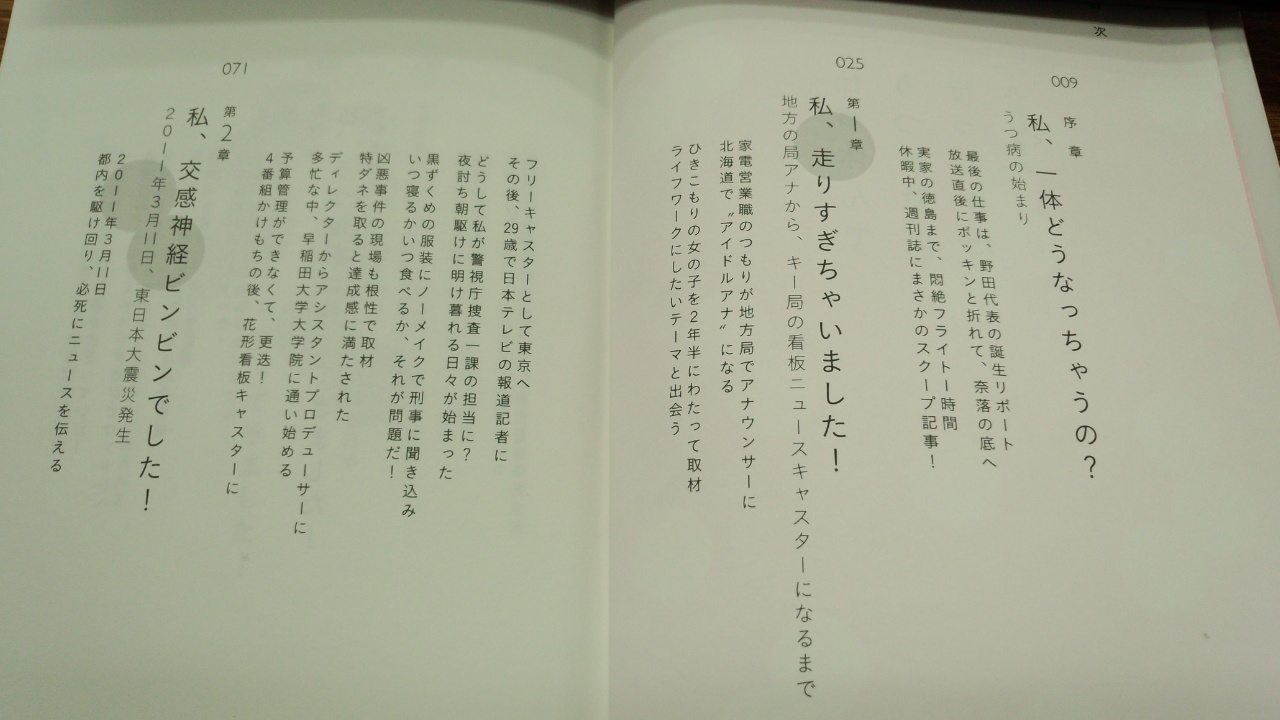 次
009
序章
私、一体どうなっちゃうの？
うつ病の始まり
最後の仕事は、野田代表の誕生リポート
放送直後にポッキンと折れて、奈落の底へ
実家の徳島まで、悶絶フライト一時間
休暇中、週刊誌にまさかのスクープ記事！
025
第1章
私、走りすぎちゃいました！
地方の局アナから、キー局の看板ニュースキャスターになるまで
家電営業職のつもりが地方局でアナウンサーに
北海道で〝アイドルアナ〟になる
ひきこもりの女の子を2年半にわたって取材
ライフワークにしたいテーマと出会う
フリーキャスターとして東京へ
その後、29歳で日本テレビの報道記者に
どうして私が警視庁捜査一課の担当に？
夜討ち朝駆けに明け暮れる日々が始まった
黒ずくめの服装にノーメイクで刑事に聞き込み
いつ寝るかいつ食べるか、それが問題だ！
凶悪事件の現場も根性で取材
特ダネを取ると達成感に満たされた
ディレクターからアシスタントプロデューサーに
多忙な中、早稲田大学大学院に通い始める
予算管理ができなくて、更迭！
4番組かけもちの後、花形看板キャスターに
071
第2章
私、交感神経ビンビンでした！
2011年3月11日、東日本大震災発生
2011年3月11日
都内を駆け回り、必死にニュースを伝える